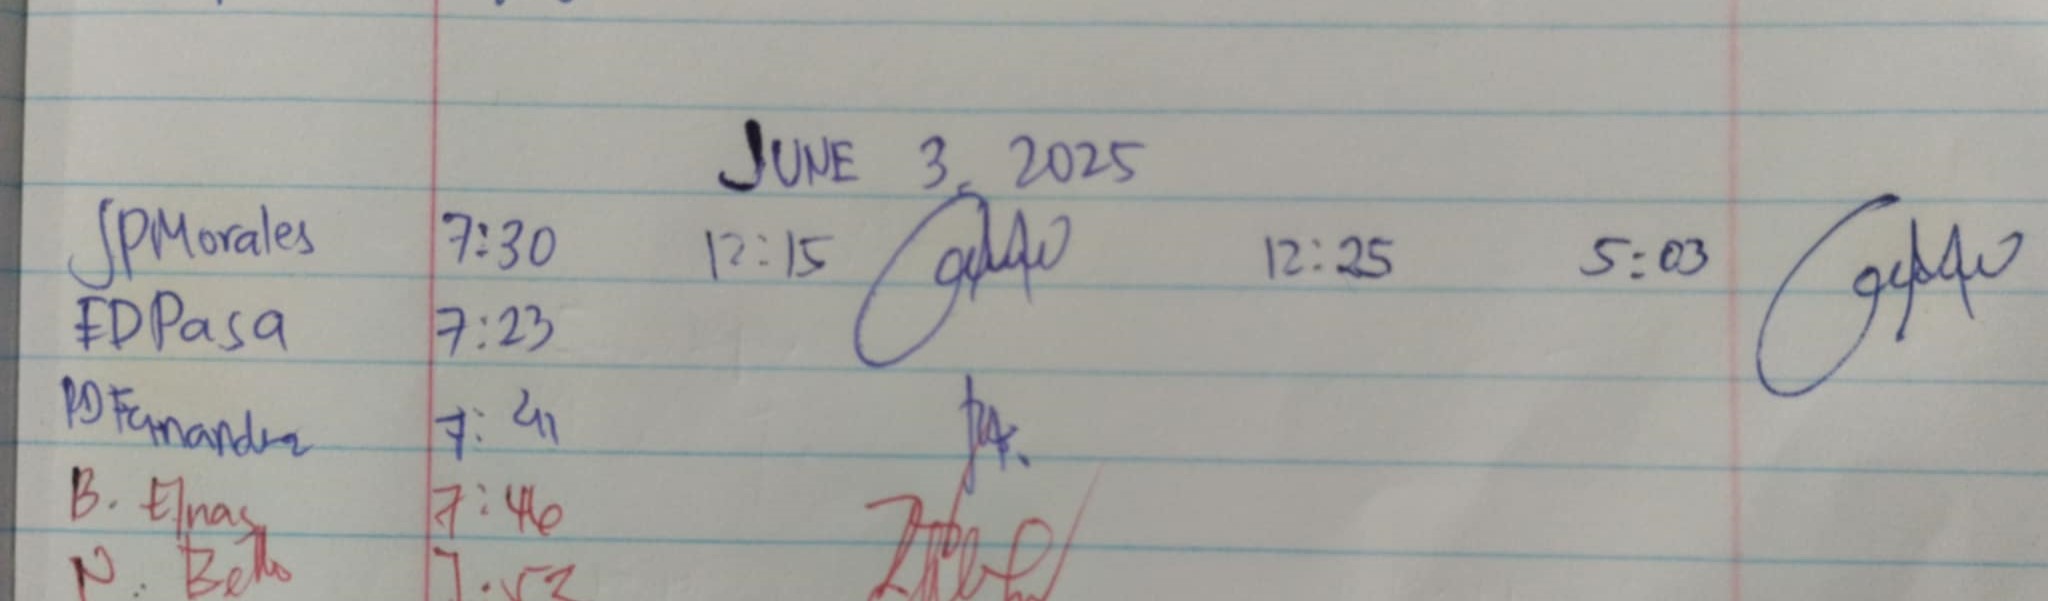 JUNE 3, 2025
JPMorales 7:30 12:15 12:25 5:03
EDPasa 7:23
PDFernandez 7:41
B. Elnas 7:46
N. Bello 7:53